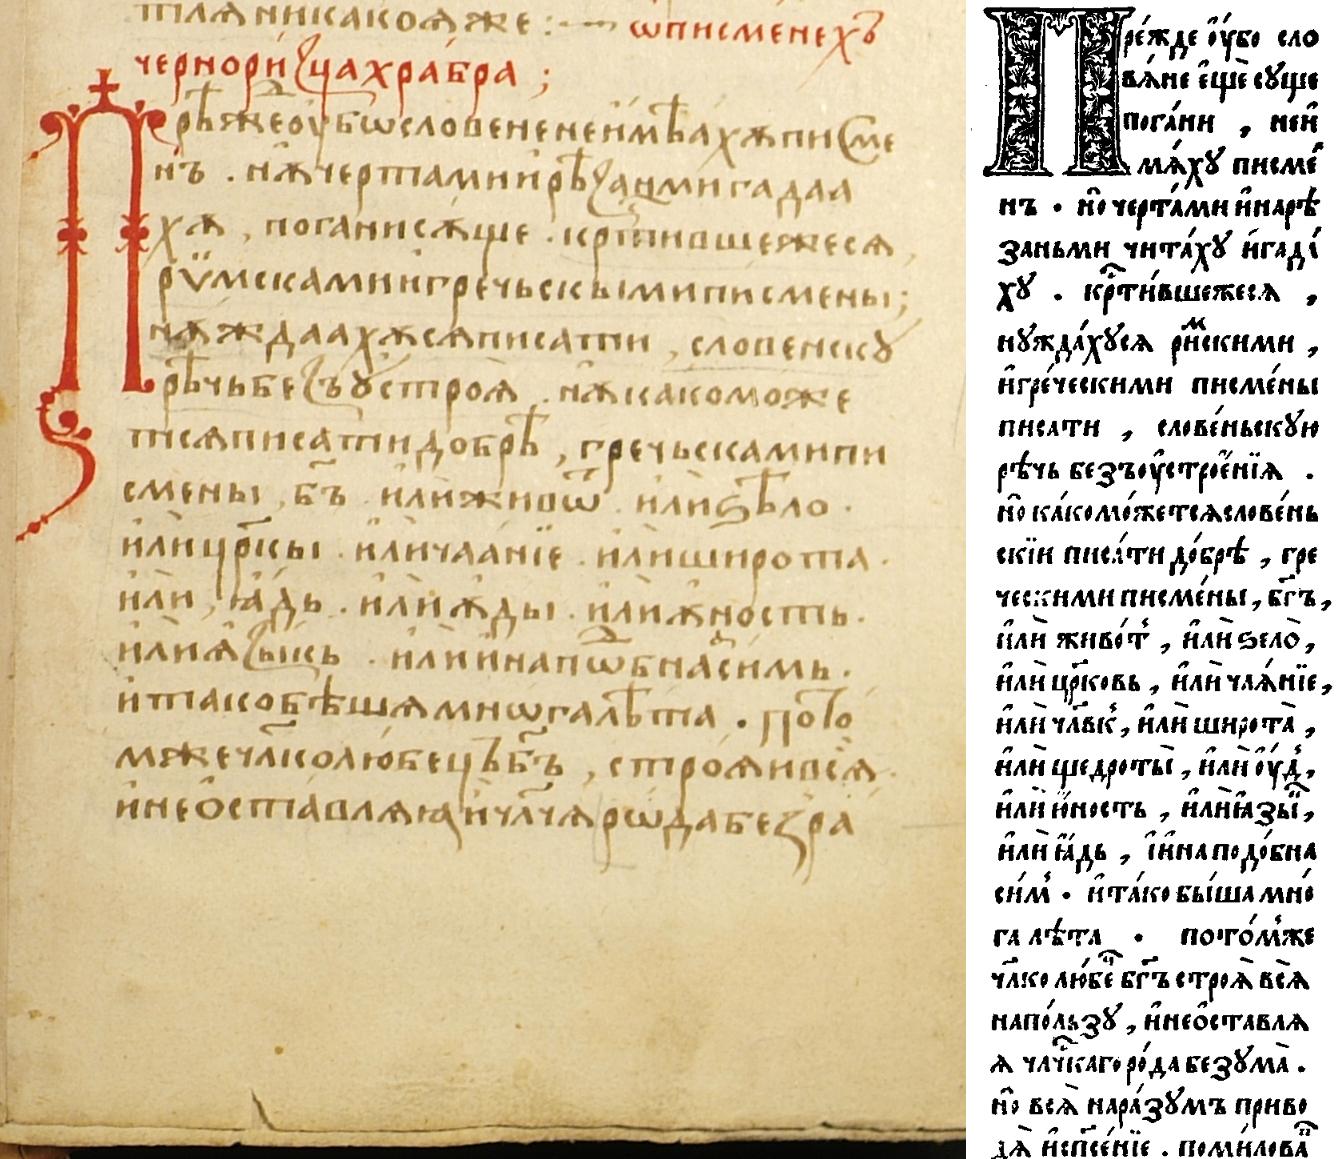 тлѧникакоѧже : ѡписменехъ
чернори́зцахра́бра ;
Прѣжеѹ҆бѡсловененеи҆мѣахѫписме
нъ . нѫчертамии҆рѣзанмигадаа
хѫ , поганисѫще . кр҃тившежесѧ ,
ри́мскамиигречьскымиписмены ;
нѫждаахѫсѧписати , словенскꙋ
рѣчьбезъꙋстроѧ . нѫкакоможе
тсѧписатидобрѣ , гречьскамипи
смены , б҃ъ . и҆лиживѿ . и҆лиѕѣло .
и҆лицр҃кы . и҆личаанїе . и҆лиширота .
и҆ли , ꙗ҆дь . и҆лиѫды . и҆лиюность .
и҆лиѧзыкь . и҆лии҆напѡⷣбнасимь .
и҆такобѣшѧмнѡгалѣта . пото
мжечл҃колюбецьб҃ъ , строѧивсѧ .
и҆неѡставлѧѧи҆чл҃чѧрѡдабезра
Пре́жде ѹ҆́бо сло
вѧ́не є҆щѐ сꙋще
пога́ни , неи҆
мѧ́хꙋ писме́
нъ . но̑ черта́ми и҆нарѣ
заньми чита́хꙋ и҆гадї
хꙋ . кр҃ти́вшежесѧ ,
нꙋжда́хꙋсѧ риⷨскими ,
и҆гре́ческими писме́ны
писати , слове́ньскꙋю
рѣ́чь безъѹ҆строе́нїѧ .
но̑ ка́комо́жетсѧслове́нь
скїи писа́ти до́брѣ , гре
ческими писме́ны , бг҃ъ ,
и҆лѝ живо́т , и҆лѝ ѕело̀ ,
и҆лѝ цр҃ковь , и҆лѝ чаѧ́нїе ,
и҆лѝ чл҃вк , и҆лѝ широта̀ ,
и҆лѝ щедроты̀ , и҆лѝ ѹ҆д ,
и҆лѝ ю҆ность , и҆лѝ ꙗ҆зы ,
и҆лѝ ꙗ҆́дь , і҆и҆на подо́бна
си́м . и҆та́ко бы́ша мно́
га лѣ́та . пото́мже
чл҃колюбеⷰ҇ бг҃ъ строѧ̀ всѧ̀
напо́льзꙋ , и҆неѡ҆ставлѧ
ѧ чл҃ч́каго ро́да безꙋма̀ .
но̑ всѧ̀ нара́зꙋмъ приво
дѧ̀ и҆сп҃се́нїе . поми́лова